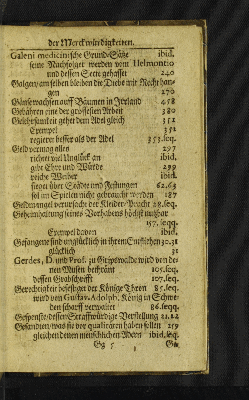 der Merckwürdigkeiten.
Galeni medicinische Grund-Sätze ibid.
seine Nachfolger werden vom Helmontio
und dessen Sect gehasset 240
Galgen/ am selben bleiben die Diebe mit Recht han-
gen 270
Gänse wachsen auff Bäumen in Irrland 458
Gebähren eine der grössesten Arbeit 380
Gelehrsamkeit gehet dem Adel gleich 351
Exempel 352
regieret besser als der Adel 353. seq.
Geld vermag alles 297
richtet viel Unglück an ibid.
gibt Ehre und Würde 299
reiche Weiber ibid.
sieget über Städte und Festungen 62.63
sol im Spielen nicht gebraucht werden 187
Geldmangel verursacht der Kleider-Pracht 28. seq.
Geheimhaltung seines Vorhabens höchst nutzbar
157. seqq.
Exempel davon ibid.
Gefangene sind unglücklich in ihrem Entfliehen 30.31
glücklich 31
Gerdes, D. und Prof. zu Gripswalde wird von de-
nen Musen bekränt 105. seqq.
dessen Grabschrifft 107. seq.
Gerechtigkeit befestiget der Könige Thron 85. seq.
wird von Gustav-Adolph. König in Schwe-
den scharff verwaltet 86. seqq.
Gespenste/ dessen Straffwürdige Verstellung 11.12
Gesandten/ was sie vor qualitäten haben sollen 259
gleichen denen meuschlichen Adern ibid. seq.
Gg 5